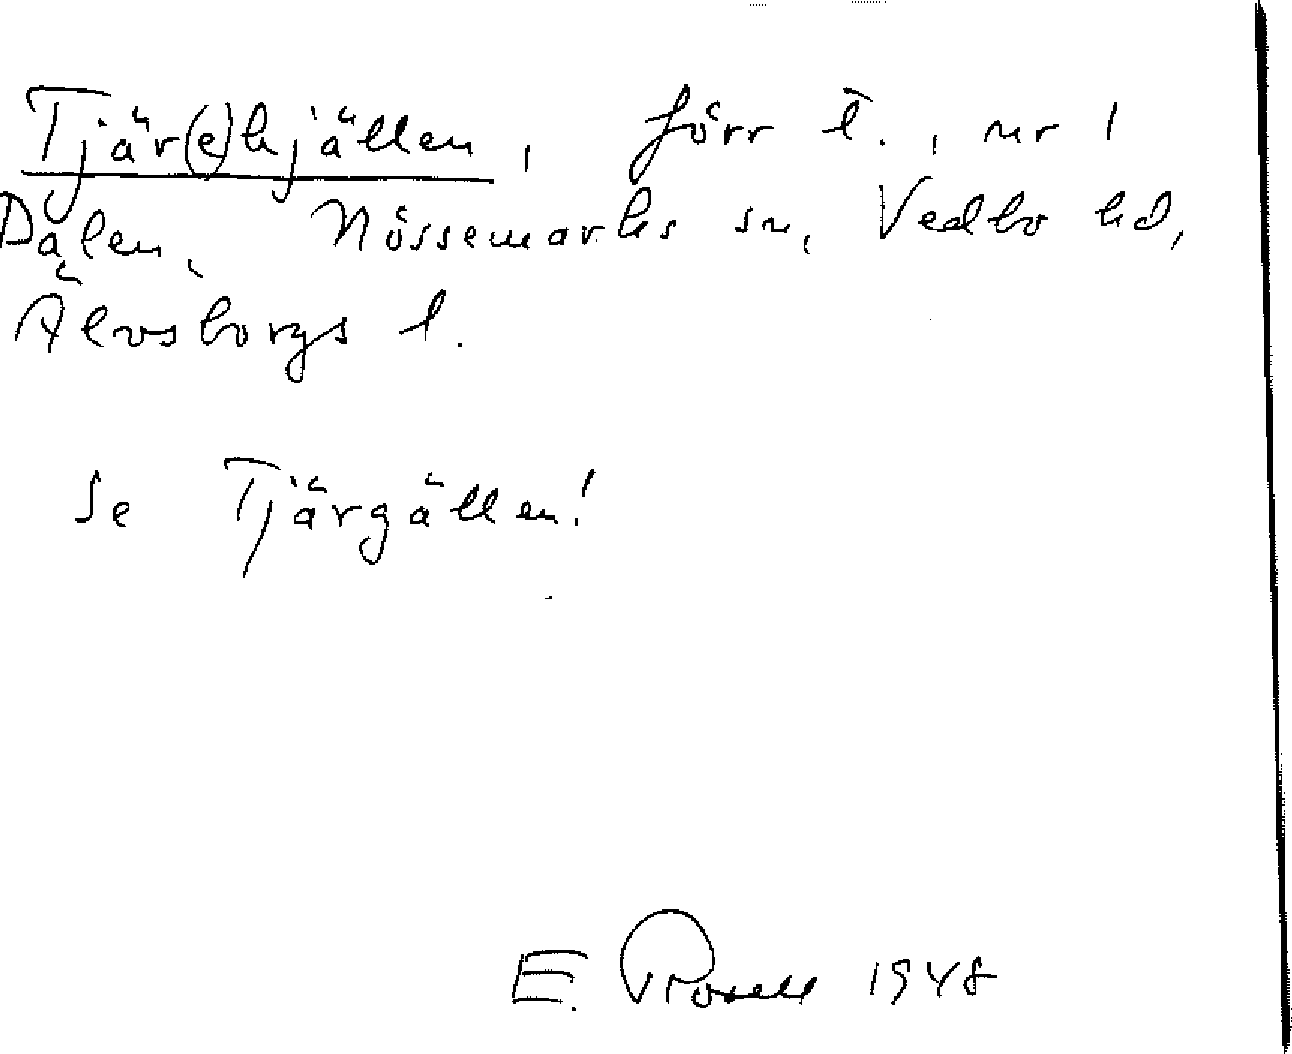 Tjär(e)kjällen, förr l., nr 1
Dalen, Nössemarks sn, Vedbo hd,
Älvsborgs l.
Se Tjärgällen!
E. Rosell 1948